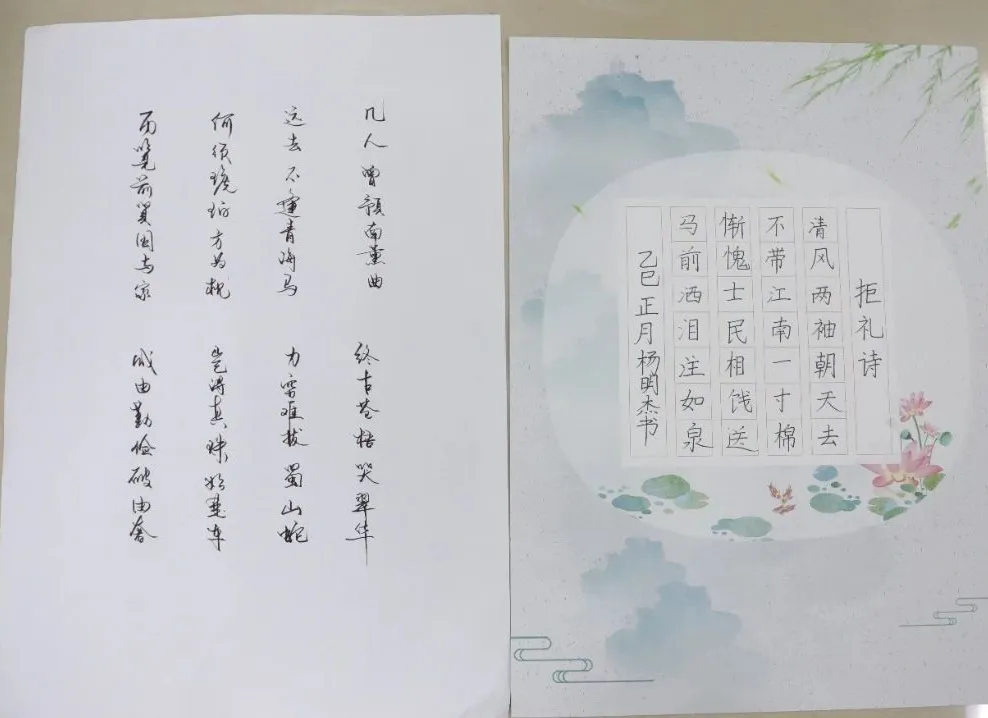 历览前贤国与家
成由勤俭破由奢
何须琥珀方为枕
岂得真珠始是车
运去不逢青海马
力穷难拔蜀山蛇
几人曾预南薰曲
终古苍梧哭翠华
拒礼诗
清风两袖朝天去
不带江南一寸棉
惭愧士民相饯送
马前洒泪注如泉
乙巳正月杨明杰书